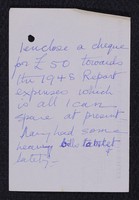 I enclose a cheque
for £50 towards
the 1948 Report
expenses which
is all I can
spare at present
having had some
heavy bills to meet
lately.